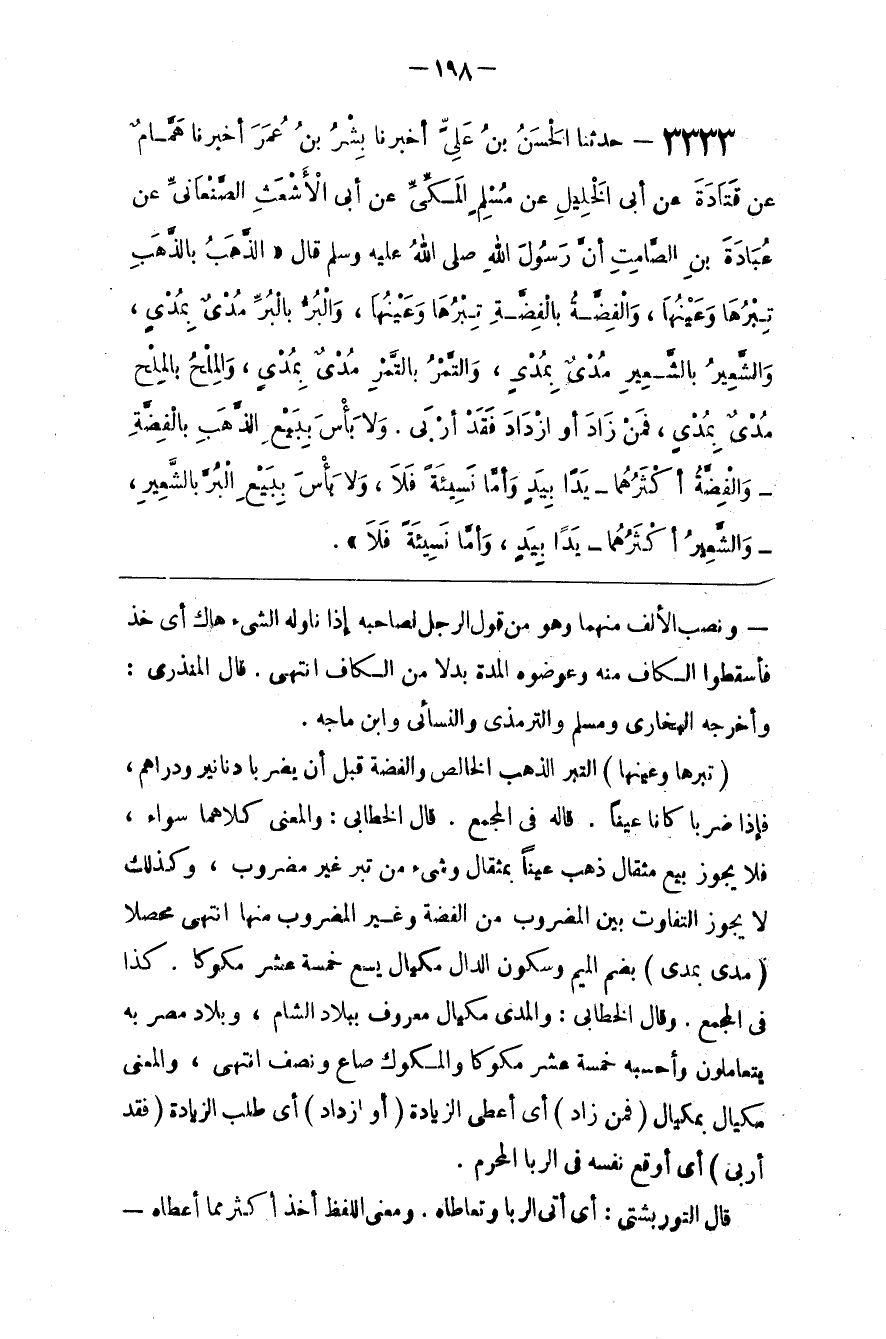 — ١٩٨ —
٣٣٣٣ — حدثنا الْحَسَنُ بنُ عَلِيٍّ أخبرنا بِشْرُ بنُ عُمَرَ أخبرنا هَمَّـامٌ
عن قَتَادَةَ عن أبى الْخَلِيلِ عن مُسْلِمٍ الْمَـكِّىِّ عن أبى الْأَشْعَثِ الصَّنْعَانىِّ عن
عُبَادَةَ بنِ الصَّامِتِ أنَّ رَسُولَ اللهِ صلى اللهُ عليه وسلم قال « الذَّهَبُ بالذَّهَبِ
تِـبْرُهَا وَعَيْنُهَا ، وَالْفِضَّـةُ بالْفِضَّـةِ تِـبْرُهَا وَعَيْنُهَا ، وَالْبُرُّ بالْبُرِّ مُدْىٌ بِمُدْىٍ ،
وَالشَّعِيرُ بالشَّـعِيرِ مُدْىٌ بِمُدْىٍ ، وَالتَّمْرُ بالتَّمْرِ مُدْىٌ بِمُدْىٍ ، وَالْمِلْحُ بالْمِلْحِ
مُدْىٌ بِمُدْىٍ ، فَمَنْ زَادَ أو ازْدَادَ فَقَدْ أرْبَى . وَلا بَأْسَ بِبَيْعِ الذَّهَبِ بالْفِضَّةِ
ـ وَالْفِضَّةُ أكْثَرُهُما ـ يَدًا بِيَدٍ وَأمَّا نَسِيئَةً فَلاَ ، وَلا بَأْسَ بِبَيْعِ الْبُرِّ بالشَّعِيرِ ،
ـ وَالشَّعِيرُ أكْثَرُهُما ـ يَدًا بِيَدٍ ، وَأمَّا نَسِيئَةً فَلاَ » .
— ونصب الألف منهما وهو من قول الرجل لصاحبه إذا ناوله الشىء هاك أى خذ
فأسقطوا الـكاف منه وعوضوه المدة بدلا من الـكاف انتهى . قال المنذرى :
وأخرجه البخارى ومسلم والترمذى والنسائى وابن ماجه .
( تبرها وعينها ) التبر الذهب الخالص والفضة قبل أن يضربا دنانير ودراهم ،
فإذا ضربا كانا عيفاً . قاله فى المجمع . قال الخطابى : والمعنى كلاهما سواء ،
فلا يجوز بيع مثقال ذهب عيناً بمثقال وشىء من تبر غير مضروب ، وكذلك
لا يجوز التفاوت بين المضروب من الفضة وغـير المضروب منها انتهى محصلا
( مدى بمدى ) بضم الميم وسكون الدال مكيال يسع خمسة عشر مكوكا . كذا
فى المجمع . وقال الخطابى : والمدى مكيال معروف ببلاد الشام ، وبلاد مصر به
يتعاملون وأحسبه خمسة عشر مكوكا والمـكوك صاع ونصف انتهى ، والمعنى
مكيال بمكيال ( فمن زاد ) أى أعطى الزيادة ( أو ازداد ) أى طلب الزيادة ( فقد
أربى ) أى أوقع نفسه فى الربا المحرم .
قال التوربشتى : أى أتى الربا وتعاطاه . ومعنى اللفظ أخذ أكثر مما أعطاه —